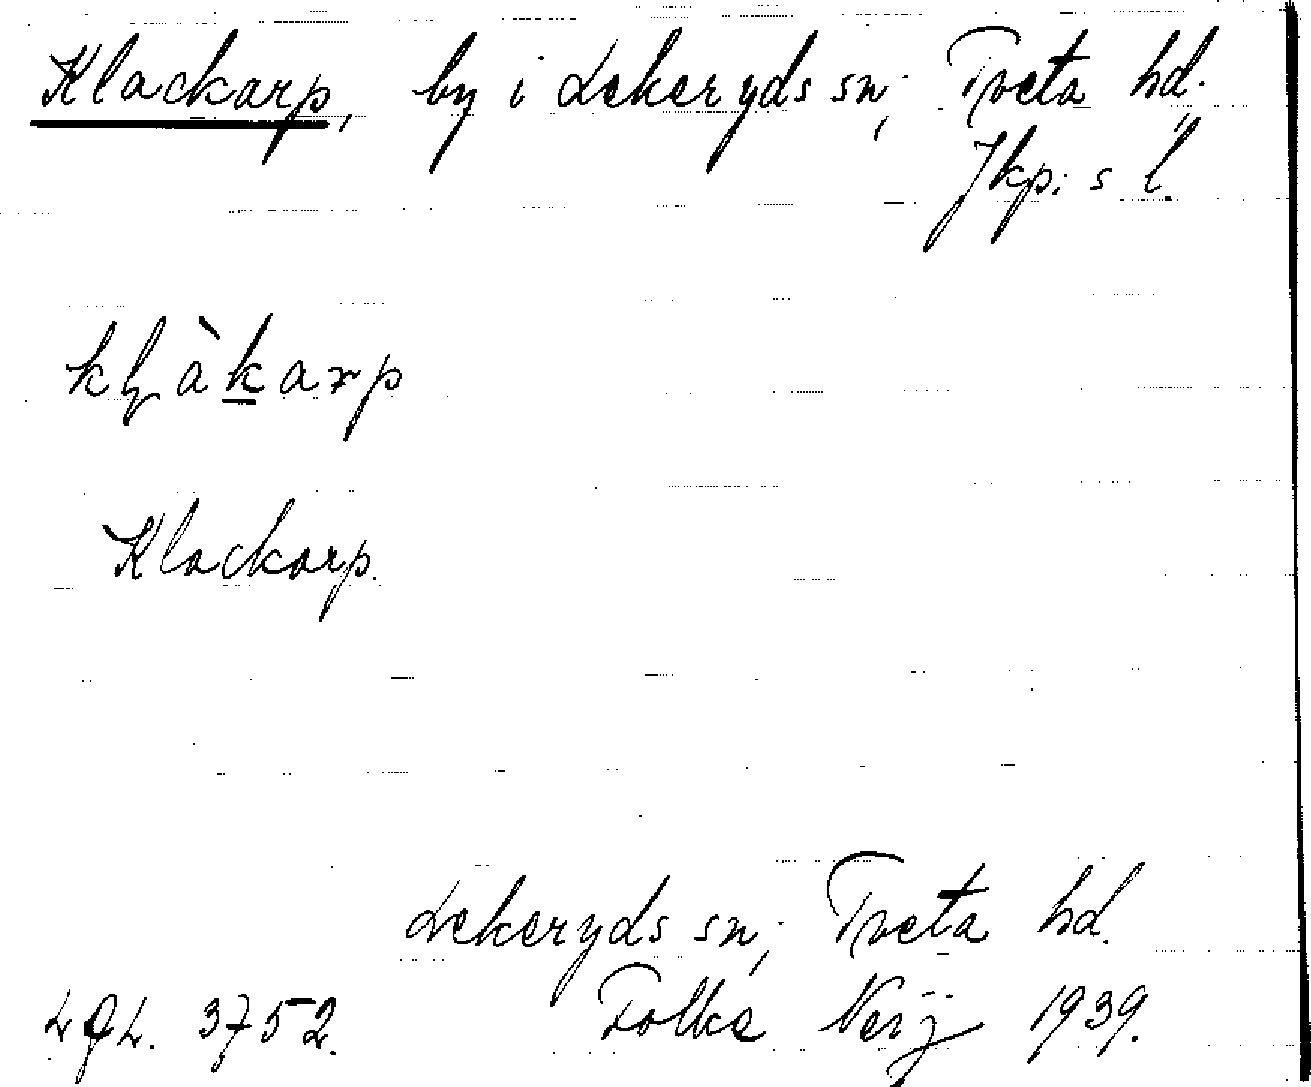 Klackarp, by i Lekeryds sn, Tveta hd.
Jkp:s l.
kḷàkarp
Klackarp.
Lekeryds sn, Tveta hd.
3752. Folke Neij 1939.